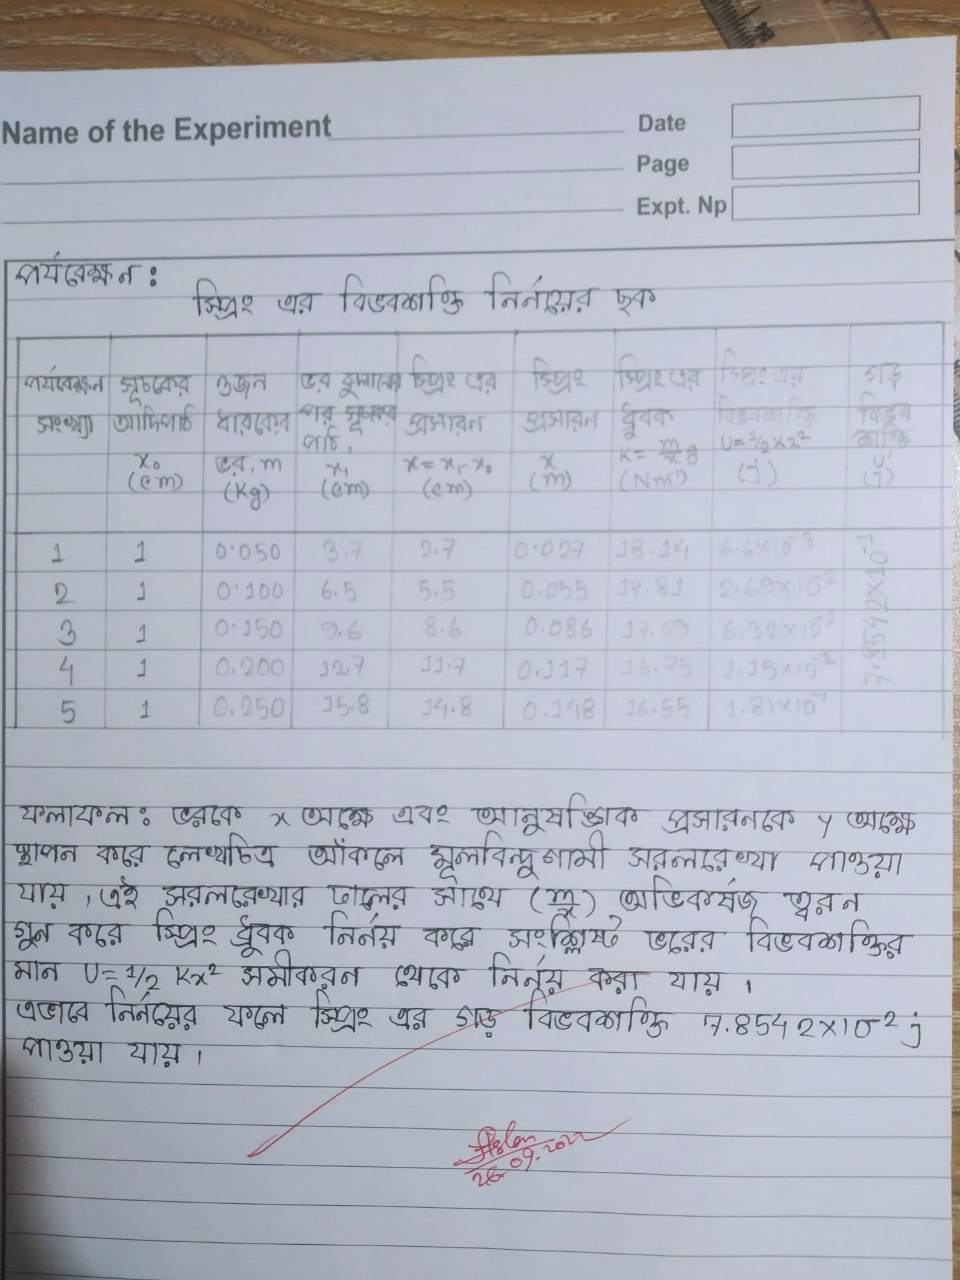 Name of the Experiment
Date
Page
Expt. Np
পর্যবেক্ষন :
স্প্রিং এর বিভবশক্তি নির্নয়ের ছক
পর্যবেক্ষন সংখ্যা | সূচকের আদিপাঠ x₀ (cm) | ওজন ধারকের ভর, m (Kg) | ভর ঝুলানোর পর সূচকের পাঠ, x₁ (cm) | স্প্রিং এর প্রসারন x = x₁ - x₀ (cm) | স্প্রিং প্রসারন x (m) | স্প্রিং এর ধ্রুবক K = m/x g (Nm⁻¹) | স্প্রিং এর বিভবশক্তি U = 1/2 Kx² (j) | গড় বিভব শক্তি U (j)
1 1 0.050 3.7 2.7 0.027 18.14 6.6×10⁻³
2 1 0.100 6.5 5.5 0.055 17.81 2.69×10⁻²
3 1 0.150 9.6 8.6 0.086 17.09 6.32×10⁻²
4 1 0.200 12.7 11.7 0.117 16.75 1.15×10⁻²
5 1 0.250 15.8 14.8 0.148 16.55 1.81×10⁻¹
ফলাফল : ভরকে x অক্ষে এবং আনুষঙ্গিক প্রসারনকে y অক্ষে
স্থাপন করে লেখচিত্র আঁকলে মূলবিন্দুগামী সরলরেখা পাওয়া
যায় । এই সরলরেখার ঢালের সাথে (m/x) অভিকর্ষজ ত্বরন
গুন করে স্প্রিং ধ্রুবক নির্নয় করে সংশ্লিষ্ট ভরের বিভবশক্তির
মান U = 1/2 Kx² সমীকরন থেকে নির্নয় করা যায় ।
এভাবে নির্নয়ের ফলে স্প্রিং এর গড় বিভবশক্তি 7.8542×10⁻² j
পাওয়া যায় ।